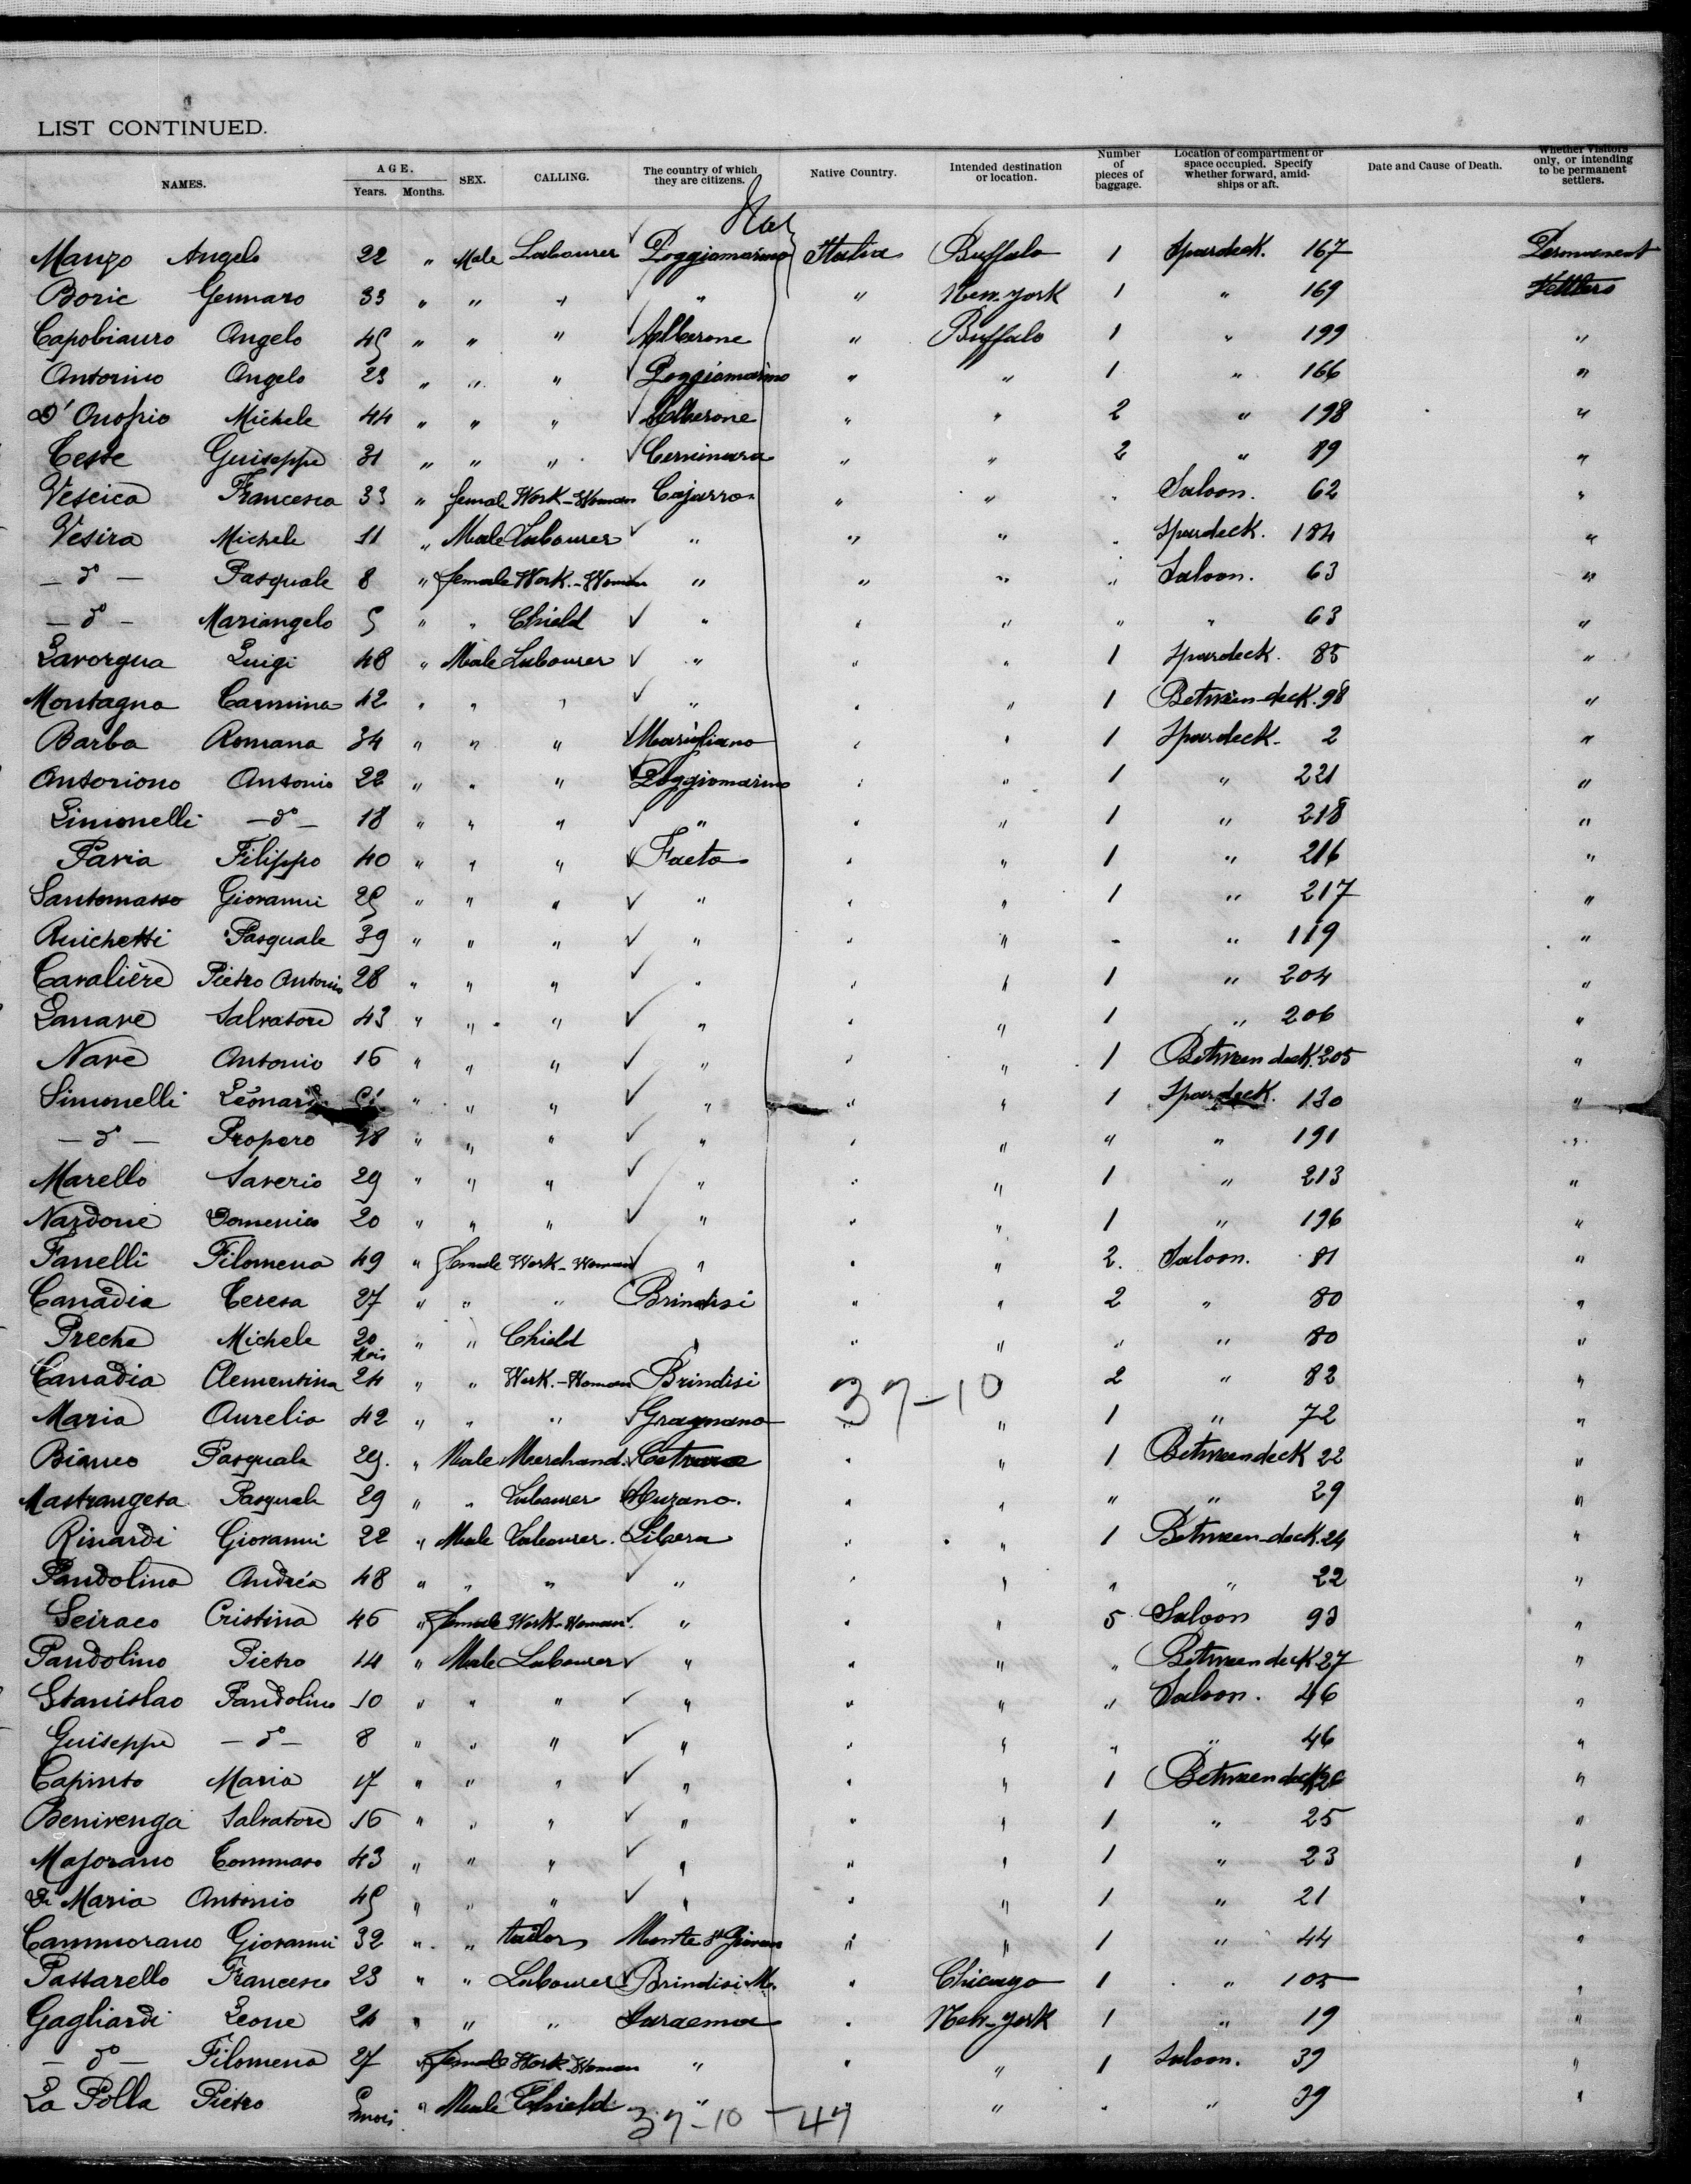 LIST CONTINUED.
NAMES. AGE. Years. Months. SEX. CALLING. The country of which they are citizens. Native Country. Intended destination or location. Number of pieces of baggage. Location of compartment or space occupied. Specify whether forward, amidships or aft. Date and Cause of Death. Whether Visitors only, or intending to be permanent settlers.
Manzo Angelo 22 " Male Labourer Poggiomarino Italia Buffalo 1 Spardeck. 167 Permanent
Boric Gennaro 33 " " " " " New-york 1 " 169 Settlers
Capobiauro Angelo 45 " " " " Buffalo 1 " 199 "
Antorino Angelo 23 " " " Poggiomarino " " 1 " 166 "
D'Onofrio Michele 44 " " " " " 2 " 198 "
Teste Guiseppe 31 " " " " " 2 " 89 "
Vescica Francesca 33 " female Work-Woman " " " Saloon. 62 "
Vesira Michele 11 " Male Labourer " " " " Spardeck. 184 "
- do - Pasquale 8 " female Work-Woman " " " " Saloon. 63 "
- do - Mariangelo 5 " " Chield " " " " " 63 "
Lavorgua Luigi 48 " Male Labourer " " " 1 Spardeck. 85 "
Montagna Carmina 42 " " " " " " 1 Between-deck. 98 "
Barba Romana 34 " " " Marigliano " " 1 Spardeck. 2 "
Antoriono Antonio 22 " " " Poggiomarino " " 1 " 221 "
Limonelli - do - 18 " " " " " " 1 " 218 "
Pavia Filippo 40 " " " Faeto " " 1 " 216 "
Santomasso Giovanni 25 " " " " " " 1 " 217 "
Ruichetti Pasquale 39 " " " " " " - " 119 "
Cavalière Pietro Antonio 28 " " " " " " 1 " 204 "
Lanave Salvatore 43 " " " " " " 1 " 206 "
Nave Antonio 16 " " " " " " 1 Between deck. 205 "
Simonelli " " " " " " 1 Spardeck. 130 "
- do - Propero 28 " " " " " " " " 191 "
Marello Saverio 29 " " " " " " 1 " 213 "
Nardone Domenico 20 " " " " " " 1 " 196 "
Fanelli Filomena 49 " female Work-Woman " " " 2. Saloon. 81 "
Canadia Teresa 27 " " " Brindisi " " 2 " 80 "
Preche Michele 20 Mois " " Chield " " " " " 80 "
Canadia Clementina 24 " " Work.-Woman Brindisi 37-10 2 " 82 "
Maria Aurelia 42 " " " Gragnano " " 1 " 72 "
Bianco Pasquale 29. " Male Merchand. " " 1 Betweendeck 22 "
Mastrangeta Pasquale 29 " " Labourer " " " " 29 "
Rinardi Giovanni 22 " Male Labourer. Libera " " 1 Between-deck. 24 "
Pandolino Andréa 48 " " " " " " " " 22 "
Seiraco Cristina 46 " female Work-Woman. " " " 5 Saloon 93 "
Pandolino Pietro 14 " Male Labourer " " " " Between deck 27 "
Stanislao Pandolino 10 " " " " " " " Saloon. 46 "
Guiseppe - do - 8 " " " " " " " " 46 "
Capinto Maria 17 " " " " " " 1 Between deck "
Benivenga Salvatore 16 " " " " " " 1 " 25 "
Majorano Tommaso 43 " " " " " " 1 " 23 "
di Maria Antonio 45 " " " " " " 1 " 21 "
Cammorano Giovanni 32 " " tailor " " 1 " 44 "
Passarello Francesco 23 " " Labourer Brindisi M. " Chicago 1 " 105 "
Gagliardi Leone 24 " " " " New-york 1 " 19 "
- do - Filomena 27 " female Work-Woman " " " 1 Saloon. 39 "
La Polla Pietro mois " Male Chield " " " " 39 "
37-10 - 47